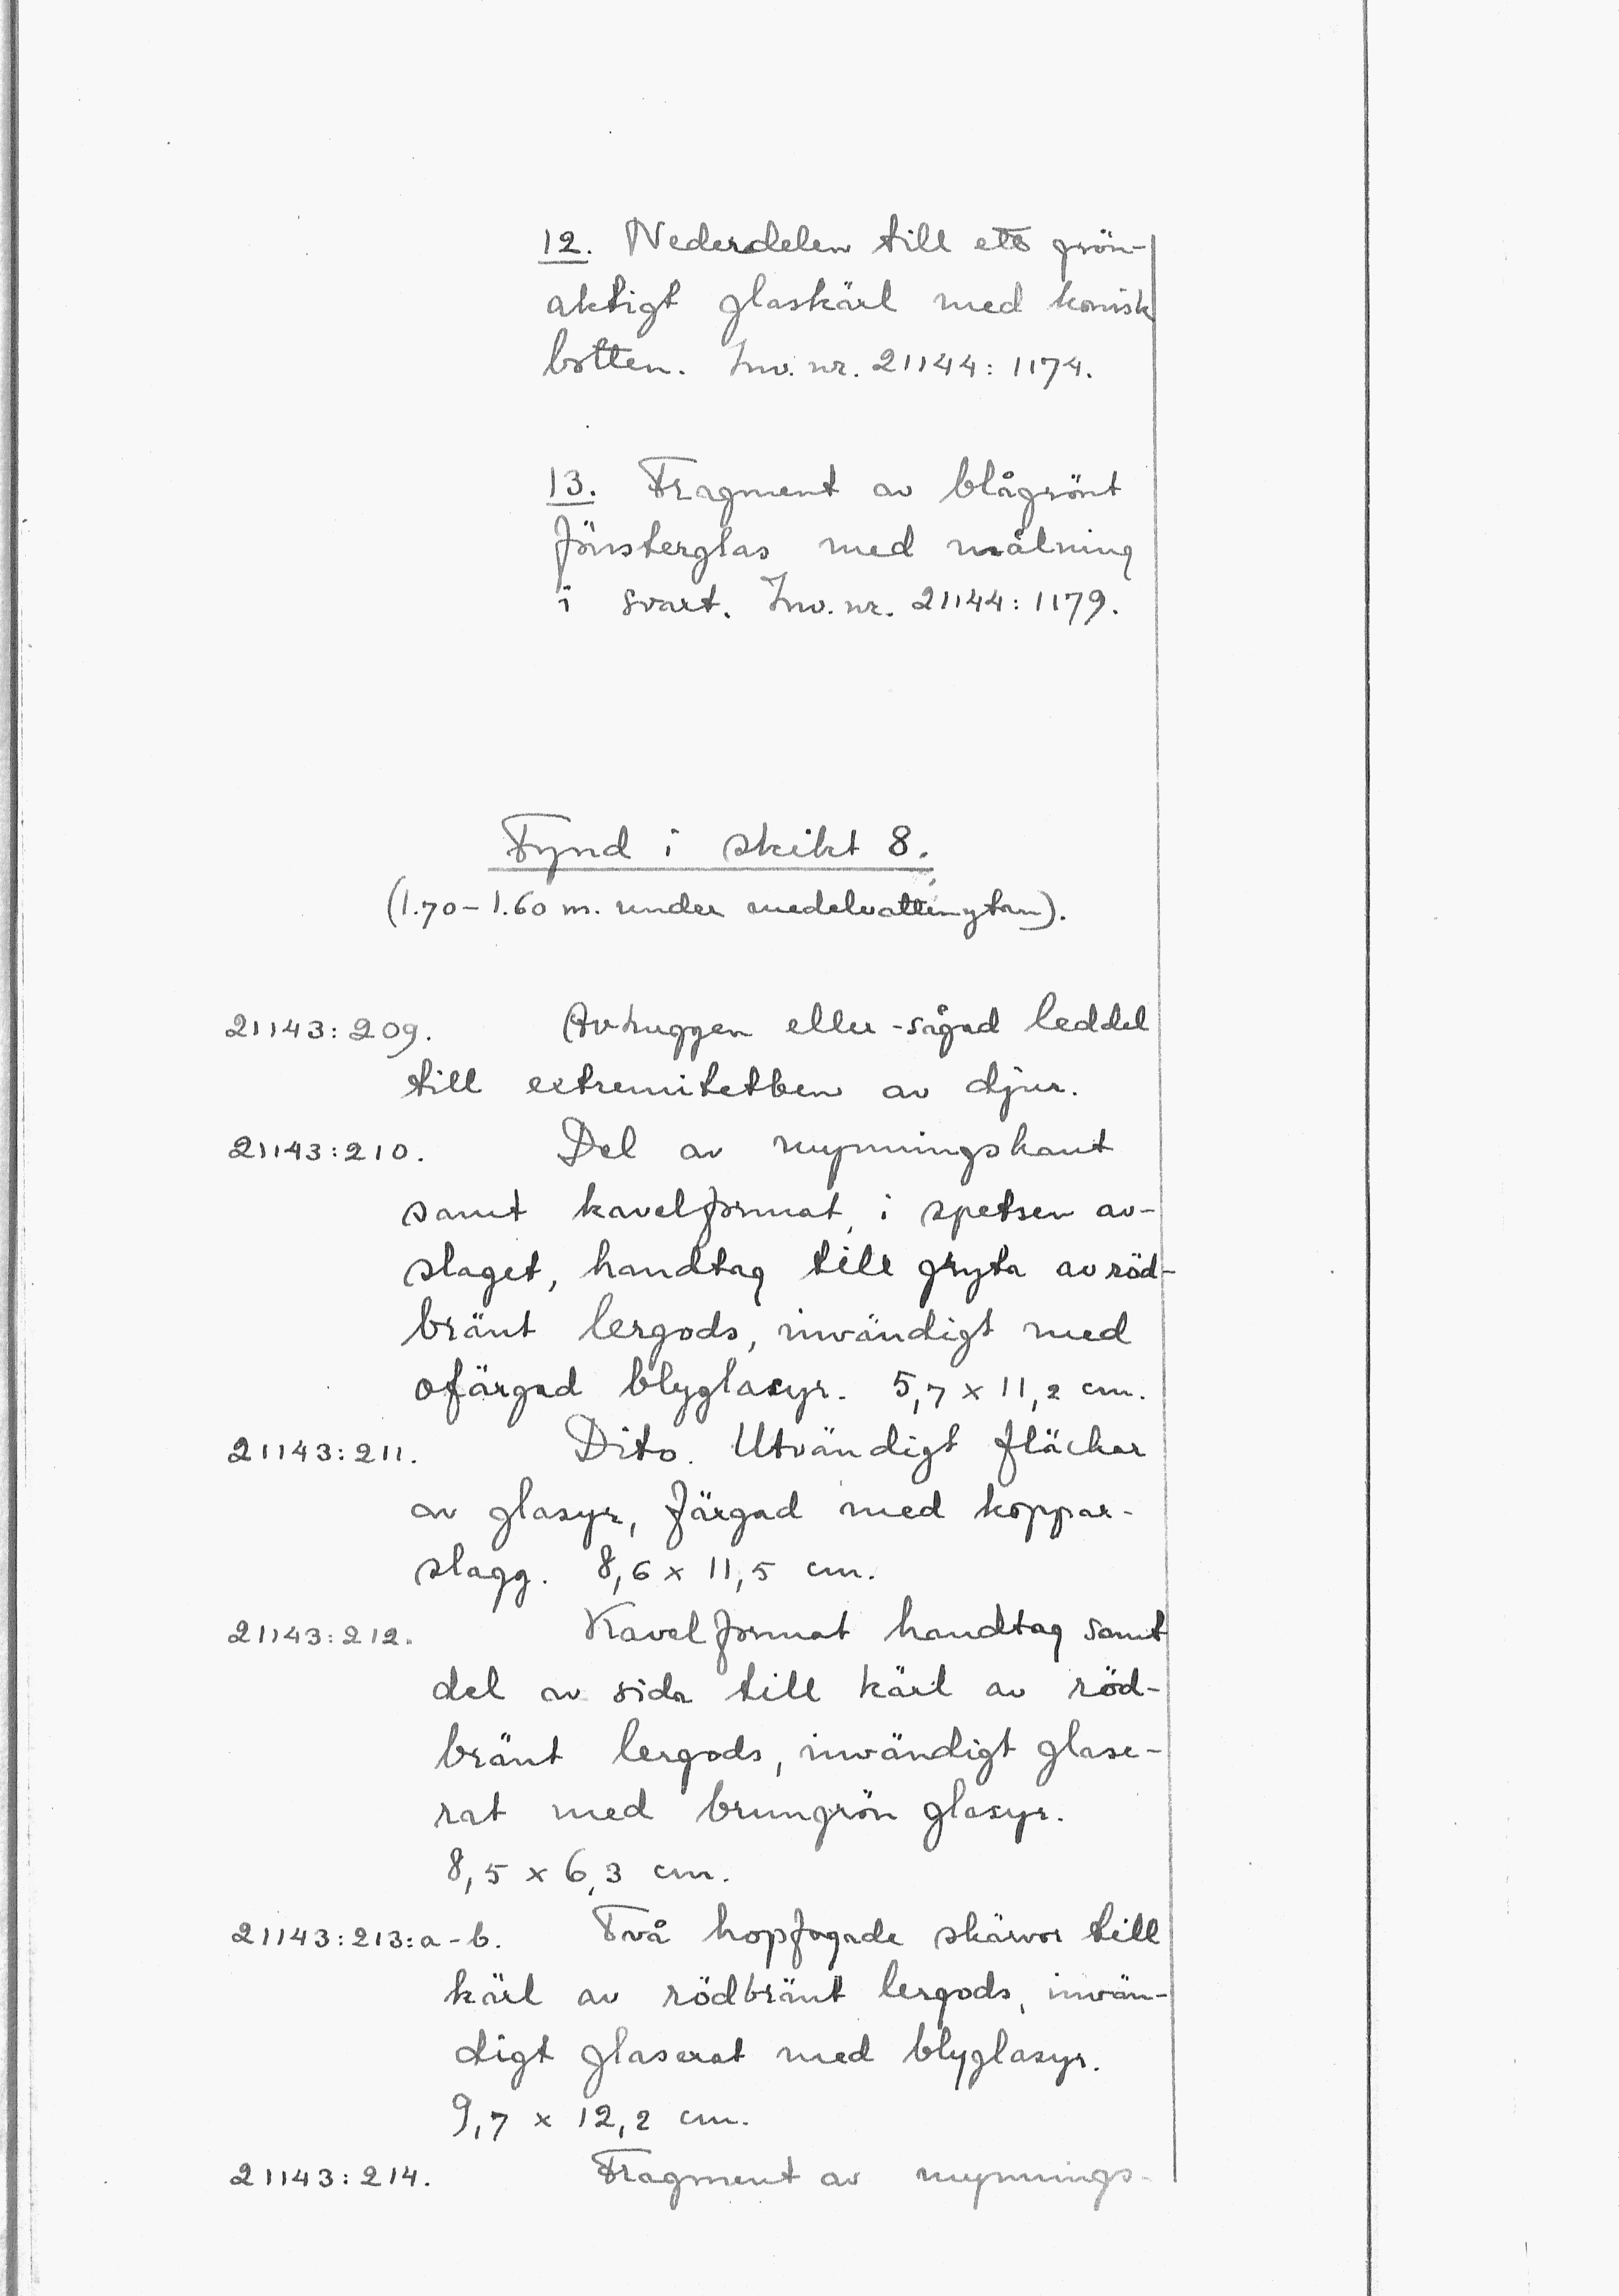 12. Nederdelen till ett grön-
aktigt glaskärl med konisk
botten. Inv. nr. 21144: 1174.
13. Fragment av blågrönt
fönsterglas med målning
i svart. Inv. nr. 21144: 1179.
Fynd i skikt 8.
(1.70-1.60 m. under medelvattenytan).
21143: 209. Avhuggen eller -sågad leddel
till extremitetben av djur.
21143:210. Del av mynningskant
samt kavelformat, i spetsen av-
slaget, handtag till gryta av röd-
bränt lergods, invändigt med
ofärgad blyglasyr. 5,7 x 11,2 cm.
21143: 211. Dito. Utvändigt fläckar
av glasyr, färgad med koppar-
slagg. 8,6 x 11,5 cm.
21143:212. Kavelformat handtag samt
del av sida till kärl av röd-
bränt lergods, invändigt glase-
rat med brungrön glasyr.
8,5 x 6,3 cm.
21143:213:a-b. Två hopfogade skärvor till
kärl av rödbränt lergods, invän-
digt glaserat med blyglasyr.
9,7 x 12,2 cm.
21143:214. Fragment av mynnings-